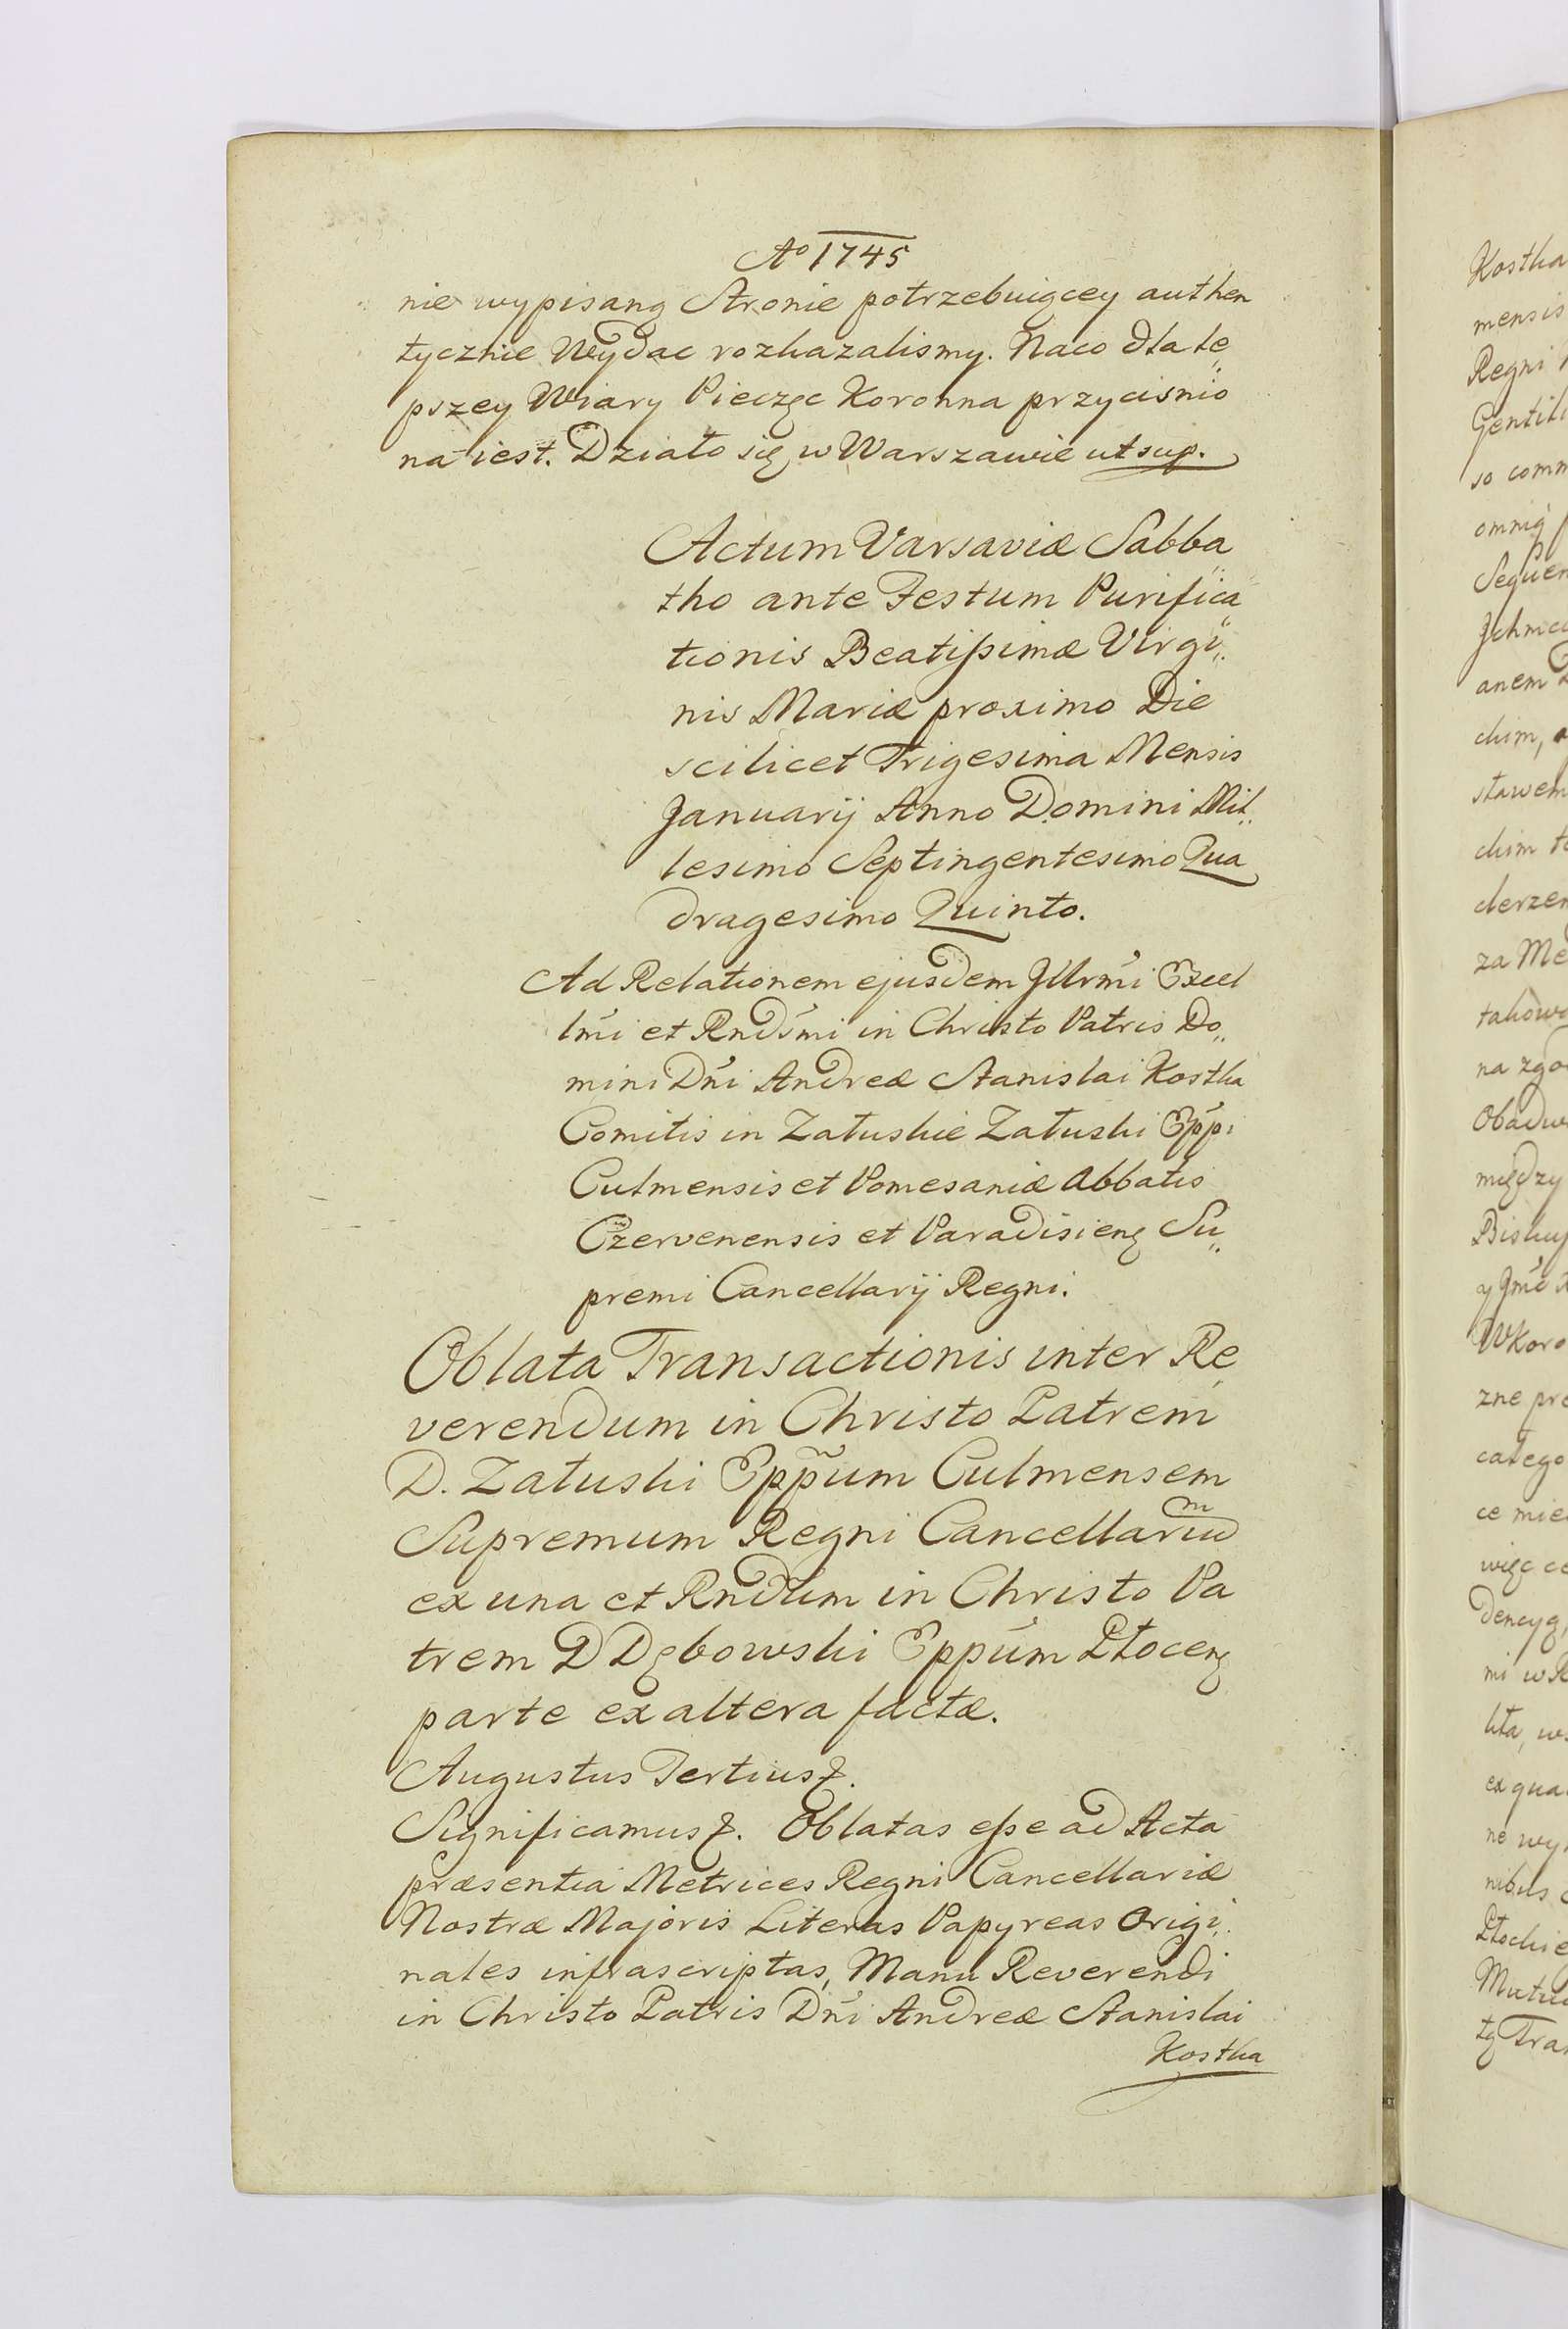 Ao 1745
nie wypisaną Stronie potrzebuiącey authen
tycznie Wydac rozkazalismy. Naco dla le„
pszey Wiary Pieczęc Koronna przycisnio
na iest. Działo się w Warszawie ut sup.
Actum Varsaviæ Sabba„
tho ante Festum Purifica„
tionis Beatißimæ Virgi„
nis Mariæ proximo Die
scilicet Trigesima Mensis
Januarij Anno Domini Mil„
lesimo Septingentesimo Qua
dragesimo Quinto.
Ad Relationem ejusdem Jllrmi Excel
lmi et Rndsmi in Christo Patris Do„
mini Dni Andreæ Stanislai Kostka
Comitis in Załuskie Załuski Eppi
Culmensis et Pomesaniæ Abbatis
Czervenensis et Paradisienę Su„
premi Cancellarij Regni.
Oblata Transactionis inter Re„
verendum in Christo Patrem
D. Załuski Eppum Culmensem
Supremum Regni Cancellariū
ex una et Rndum in Christo Pa
trem D Dębowski Eppum Płocenę
parte ex altera factæ.
Augustus Tertius ꝛ.
Significamus ꝛ. Oblatas eße ad Acta
præsentia Metrices Regni Cancellariæ
Nostræ Majoris Literas Papyreas Origi„
nales infrascriptas, Manu Reverendi
in Christo Patris Dni Andreæ Stanislai
Kostka
Kostka
mensis
Regni
Gentili
so comm
omnią
Sequen
anem
chim,
stawem
chim
dzerzen
za Me
takowa
na zgo
Obadw
między
Biskup
y Jmć
WKoro
zne pre
catego
ce mie
więc ce
dencyą,
mi w R
lita, ws
ex qua
ne wy
nibus
Płockie
Mutu
tę Tra